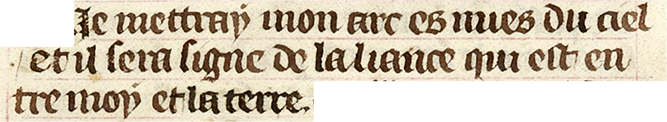 Je mettray mon arc es nues du ciel
et il sera signe de laliance qui est en
tre moy et la terre.